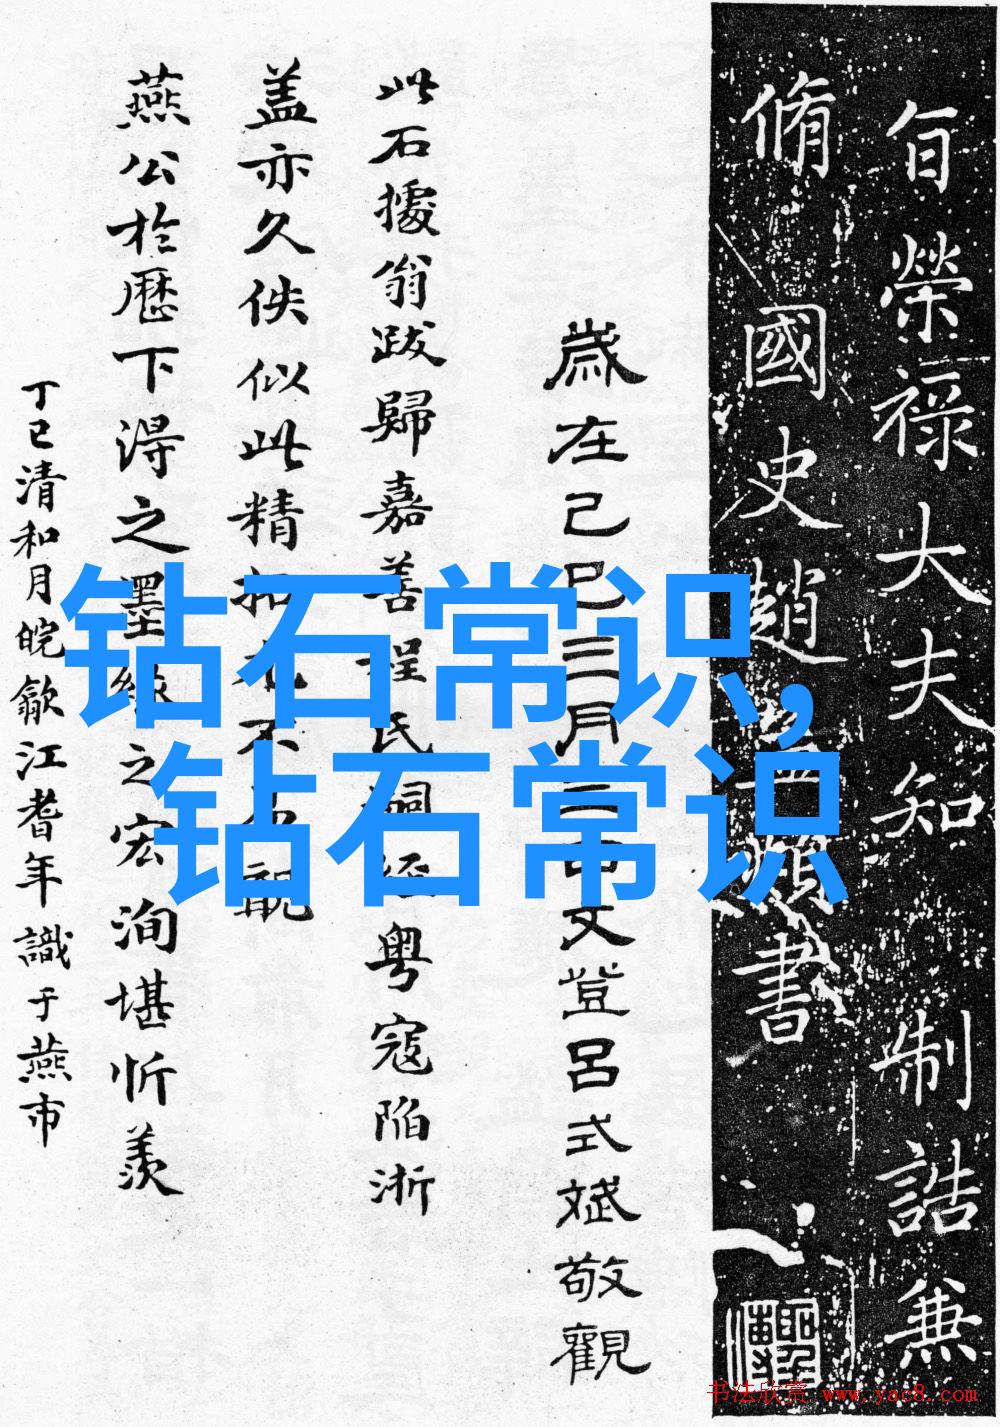 旨榮祿大夫知 制誥兼
脩國史趙孟頫書
歲在己巳三月文登呂式斌敬觀
此石據翁跋歸嘉善程氏嗣經粵寇陷浙
盖亦久佚似此精拓不觀
燕公於歷下淂之墨緣之宏洵堪忻羨
丁巳清和月皖歙江耆年識于燕市
钻石常识,
钻石常识
书法欣赏 www.yac8.com